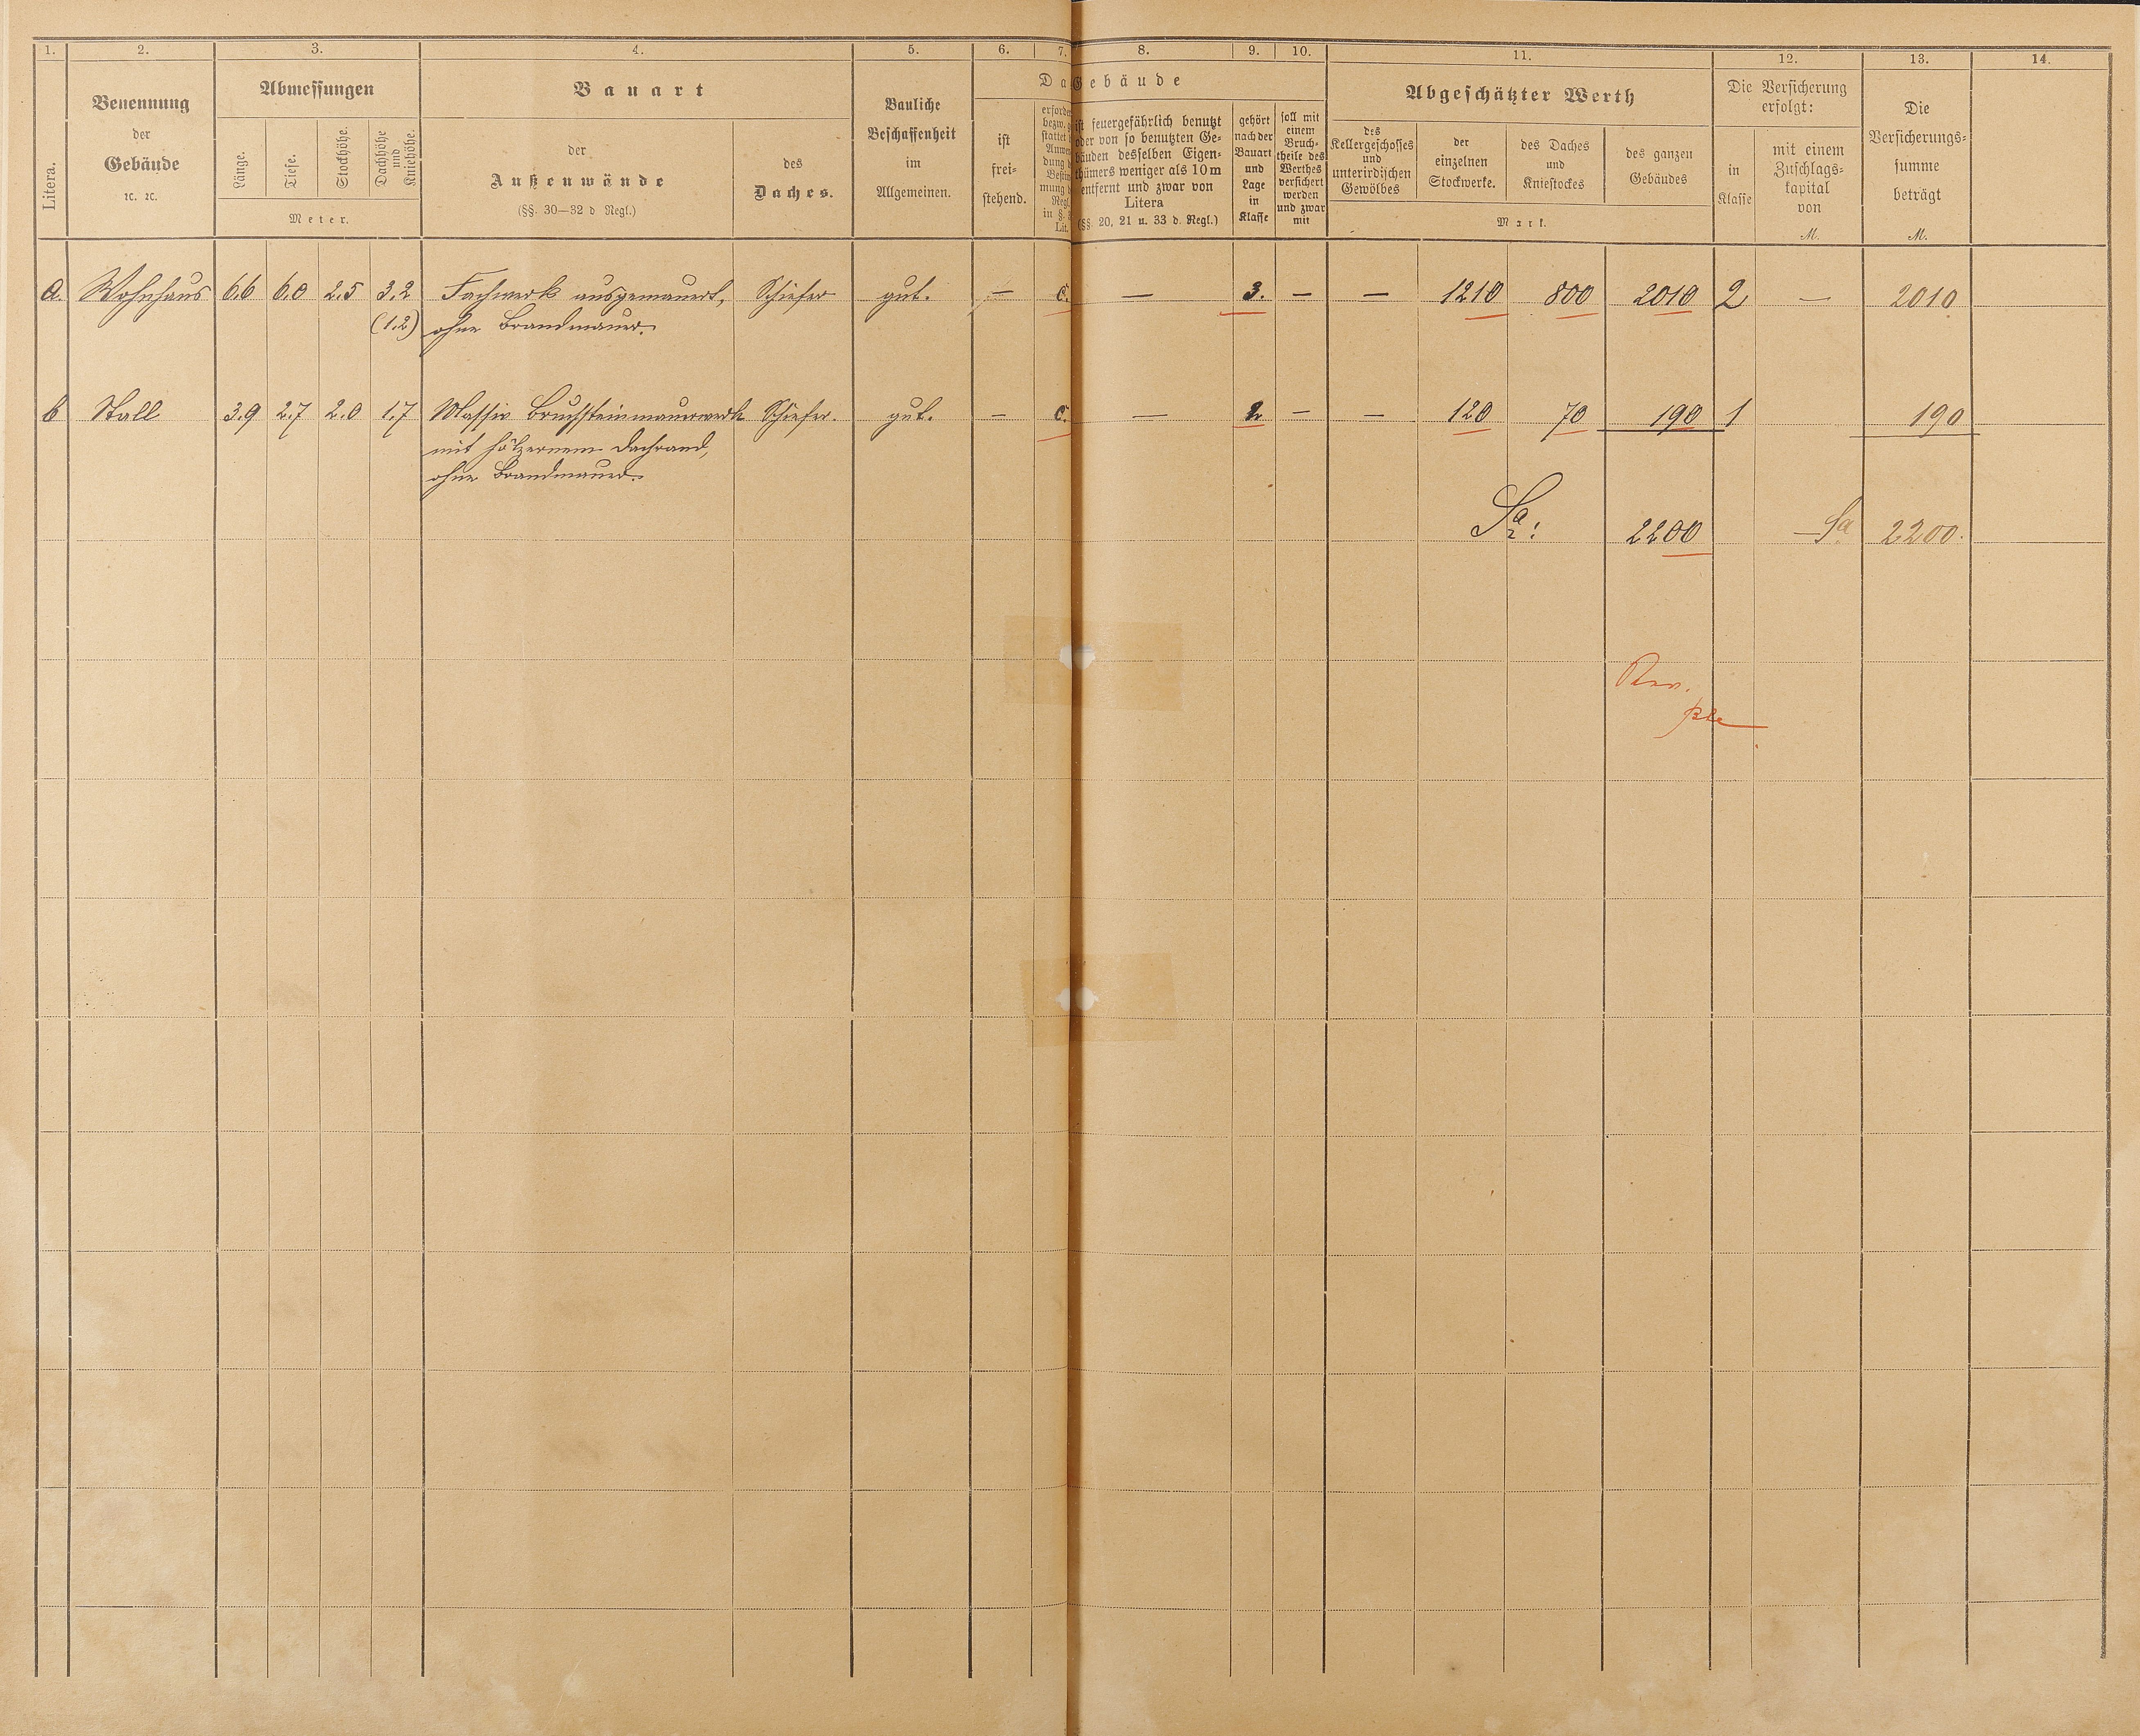 1. 2. 3. 4. 5. 6. 7. 8. 9. 10. 11. 12. 13. 14.
Litera.
Benennung
der
Gebäude
ꝛc. ꝛc.
Abmessungen
Länge.
Tiefe.
Stockhöhe.
Dachhöhe
und
Kniehöhe.
Meter.
Bauart
der
Außenwände
(§§. 30—32 d Regl.)
des
Daches.
Bauliche
Beschaffenheit
im
Allgemeinen.
Da
Gebäude
ist
frei-
stehend.
erforde
bezw. g
stattet
Anwen
dung
Bestim
mung
Regl.
in §.
Lit.
ist feuergefährlich benutzt
oder von so benutzten Ge-
bäuden desselben Eigen-
thümers weniger als 10 m
entfernt und zwar von
Litera
(§§. 20, 21 u. 33 d. Regl.)
gehört
nach der
Bauart
und
Lage
in
Klasse
soll mit
einem
Bruch-
theile des
Werthes
versichert
werden
und zwar
mit
Abgeschätzter Werth
des
Kellergeschosses
und
unterirdischen
Gewölbes
der
einzelnen
Stockwerke.
des Daches
und
Kniestockes
des ganzen
Gebäudes
Mark.
Die Versicherung
erfolgt:
in
Klasse
mit einem
Zuschlags-
kapital
von
M.
Die
Versicherungs-
summe
beträgt
M.
a. Wohnhaus 6.6 6.0 2.5 3.2 Fachwerk ausgemauert, Schiefer gut. — c. — 3. — — 1210 800 2010 2 — 2010
(1.2) ohne Brandmauer.
b Stall 3.9 2.7 2.0 1.7 Massiv Bruchsteinmauerwerk Schiefer. gut. — c. — 2. — — 120 70 190 1 190
mit hölzernem Dachrand,
ohne Brandmauer.
Sa: 2200 Sa 2200.
Rev.